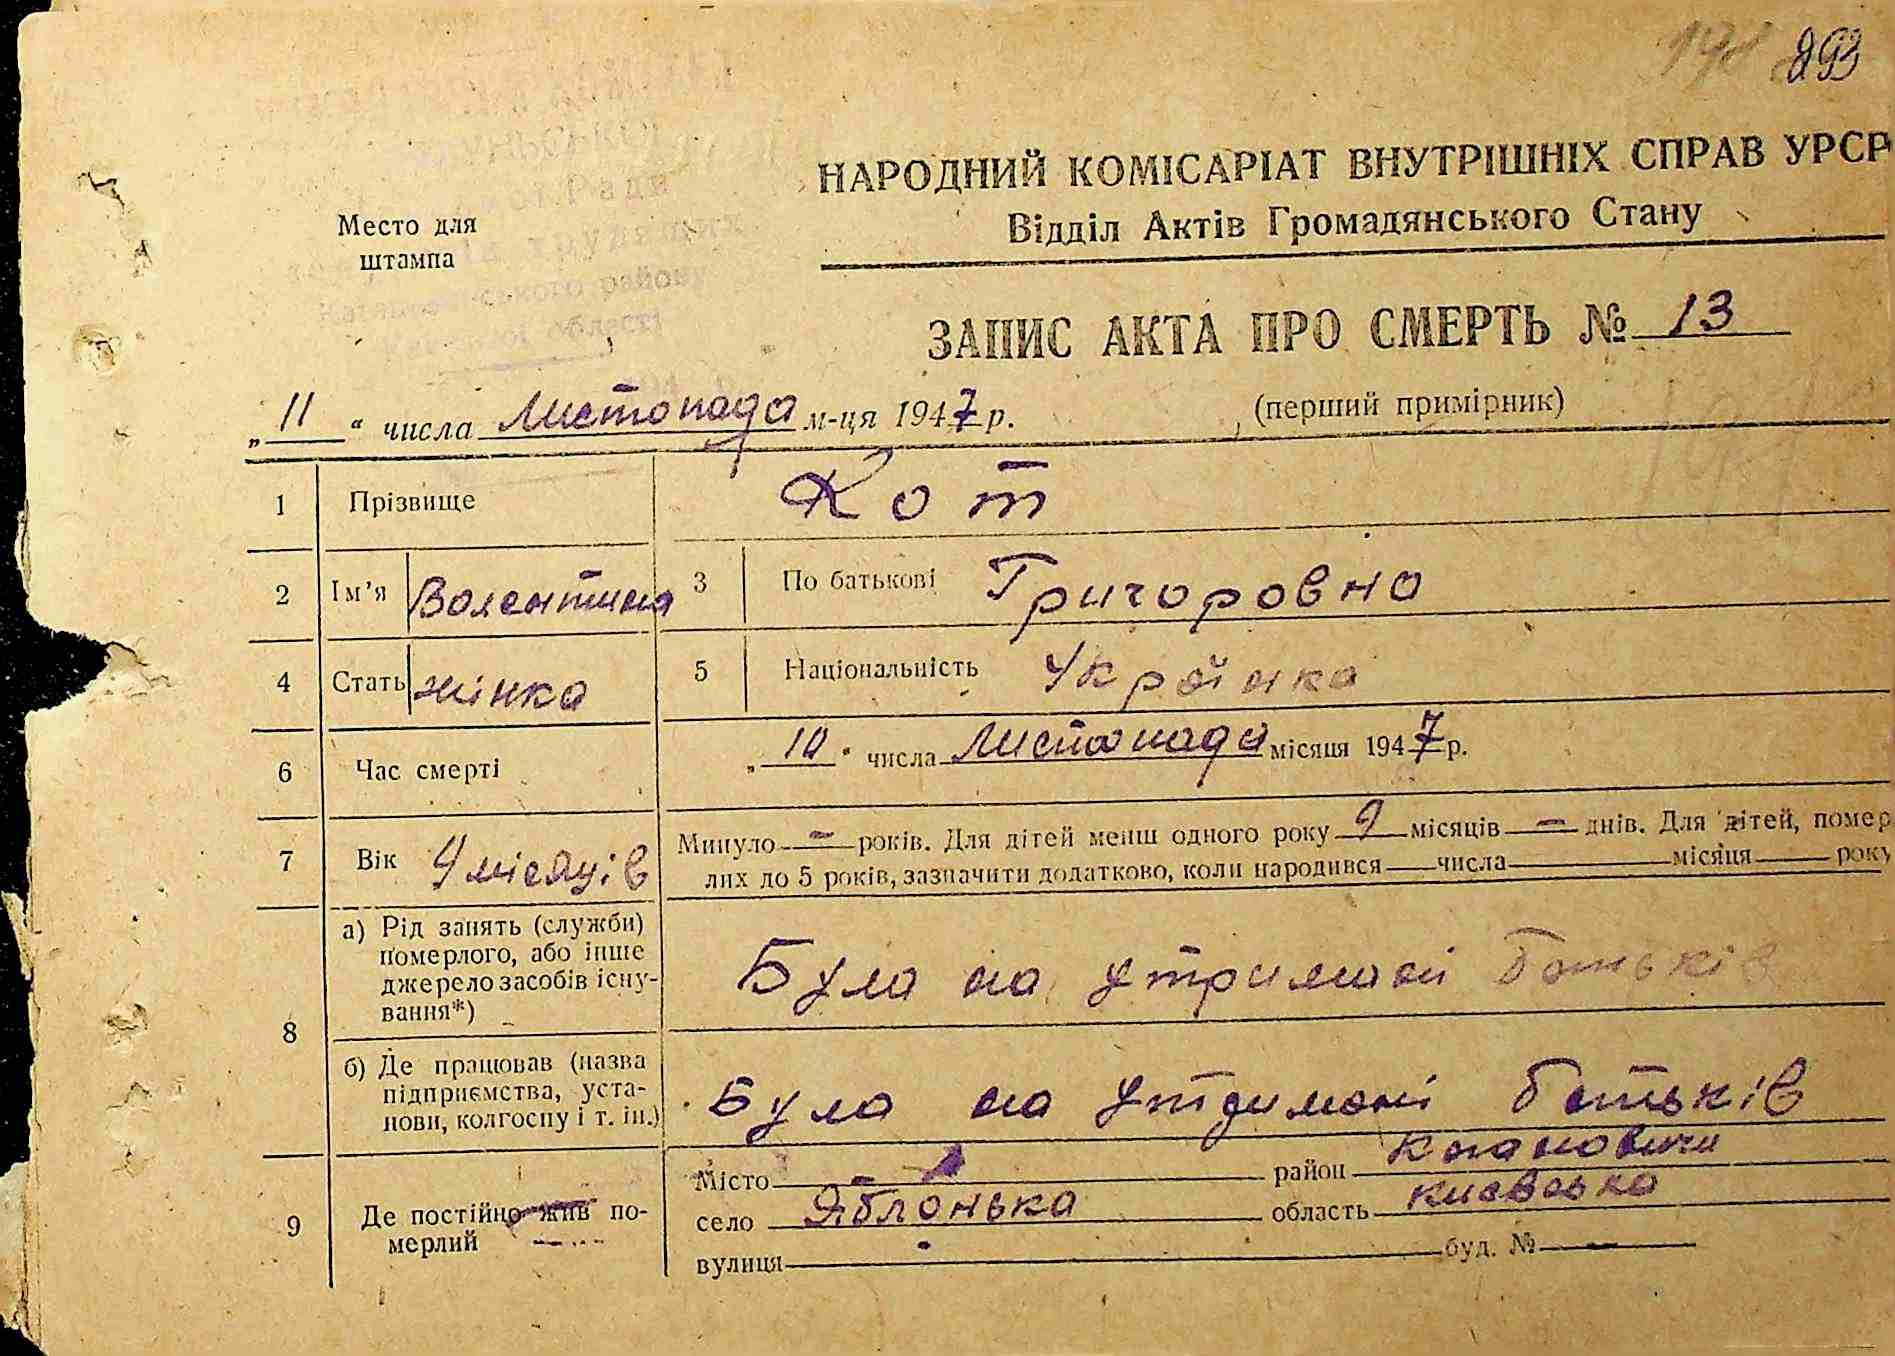 293
НАРОДНИЙ КОМІСАРІАТ ВНУТРІШНІХ СПРАВ УРСР
Відділ Актів Громадянського Стану
Место для
штампа
району
області
ЗАПИС АКТА ПРО СМЕРТЬ № 13
„11“ числа Листопада м-ця 1947 р.
(перший примірник)
1 Прізвище Кот
2 Ім'я Волентина 3 По батькові Григоровна
4 Стать жінка 5 Національність Українка
6 Час смерті „10“ числа Листопада місяця 1947 р.
7 Вік 9 місяців Минуло - років. Для дітей менш одного року 9 місяців - днів. Для дітей, помер
лих до 5 років, зазначити додатково, коли народився числа місяця року
8 а) Рід занять (служби)
померлого, або інше
джерело засобів існу-
вання*)
Була на утримані батьків
б) Де працював (назва
підприємства, уста-
нови, колгоспу і т. ін.)
Була на утримані батьків
9 Де постійно жив по-
мерлий
Місто - район Кагановичи
село Яблонька область києвська
вулиця - буд. № -